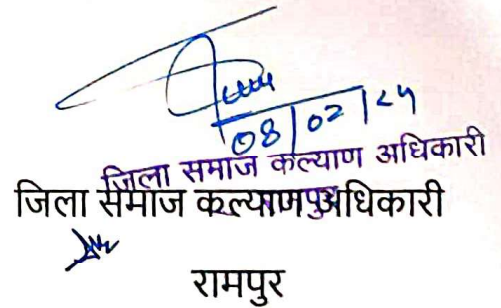 08/02/24
जिला समाज कल्याण अधिकारी
रामपुर
जिला समाज कल्याण अधिकारी
रामपुर